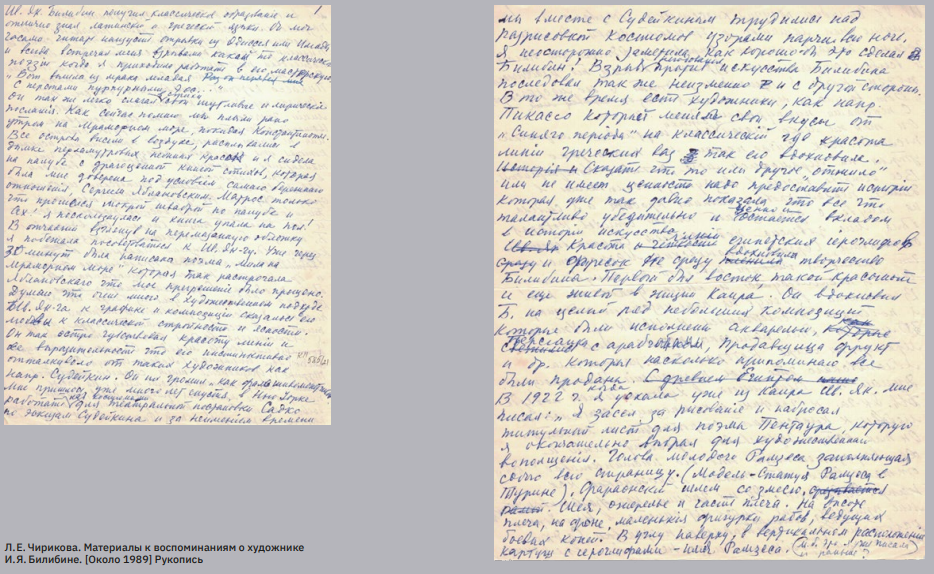 Ив. Як. Билибин получил классическое образование и
отлично знал латинский и греческий языки. Он мог
часами читать наизусть отрывки из Одиссеи или Илиады
и всегда встречал меня
поэзии когда я приходила работать в его мастерскую
"Вот вышла из мрака младая
с перстами пурпурными Эос..."
Он так же легко слагал свои шутливые и лирические
послания. Как сейчас помню мы плыли рано
утром на Мраморном море, покидая Константинополь.
Все острова висели в воздухе, расплываясь в
дымке перламутровых нежных красок и я сидела
на палубе с драгоценной книгой стихов, которая
была мне доверена под условием самого бережного
отношения, Сергеем Яблоновским. Матрос только
что прошелся мокрой шваброй по палубе и
Ах! я поскользнулась и книга упала на пол!
В отчаянии взглянув на перемазанную обложку
я побежала посоветоваться к Ив. Як-чу. Уже через
30 минут была написана поэма, "
Мраморном море" которая так растрогала
Яблоновского что мое прегрешение было прощено.
Думаю что очень много в художественном подходе
Ив. Як-ча к графике и композиции сказалось его
любовь к классической стройности и ясности.
Он так остро чувствовал красоту линии и
ее выразительность что его
отталкивало от таких художников как
напр. Судейкин. Он их громил, как
Мне пришлось, уже много лет спустя, в Нью Йорке
работать для театральной постановки Садко
по эскизам Судейкина и за неимением времени
мы вместе с Судейкиным трудились над
разрисовкой костюмов узорами парчи, всю ночь.
Я неосторожно заметила, как хорошо бы это сделал
Билибин! Взрыв против искусства Билибина
последовал так же неизменно и с другой стороны.
В то же время есть художники, как напр.
Пикассо который менял свои вкусы от
"Синяго периода" на классический где красота
линий греческих ваз так его вдохновила.
Сказать что то или другое "отжило"
или не имеет ценности надо предоставить истории
которая уже так давно показала что все что
талантливо убедительно и ценно и останется вкладом
в историю искусства.
Красота и линий египетских иероглифов
и фресок сразу вдохновила творчество
Билибина. Первой был восток, такой красочный
и еще живой в жизни Каира. Он вдохновил
Б. на целый ряд небольших композиций
которые были исполнены акварелью,
с арабчонком, Продавщица фрукт
и др. которые насколько припоминаю все
были проданы.
В 1922 г. я уехала уже из Каира Ив. Як. мне
писал: "Я засел за рисование и набросал
титульный лист для поэмы Пентаура, которую
я окончательно выбрал для художественного
воплощения. Голова молодого Рамзеса заполняющая
собой всю страницу. (Модель-Статуя Рамзеса в
Турине). Фараонский шлем со змеею,
шея, ожерелье и часть плеча. На высоте
плеча, на фоне, маленькие фигурки рабов, ведущих
боевых коней. В углу наверху, в вертикальном расположении
картуш с иероглифами - имя Рамзеса.
Л. Е. Чирикова. Материалы к воспоминаниям о художнике
И.Я. Билибине. [Около 1989] Рукопись